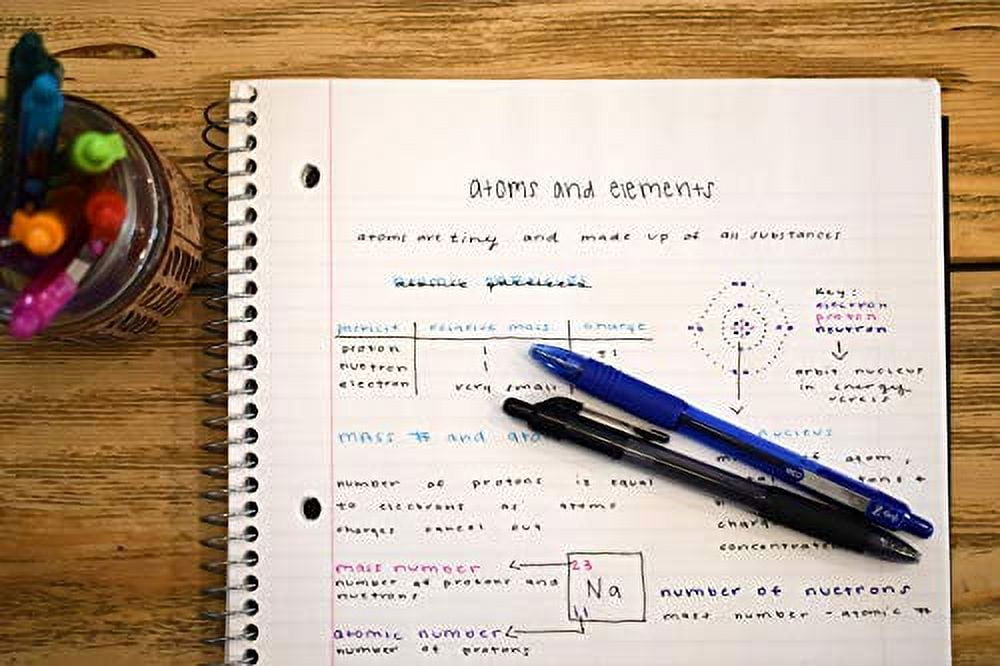 atoms and elements
atoms are tiny and made up of all substances
atomic particles
particle relative mass charge
proton 1 +1
nuetron 1
electron very small
Key:
electron
proton
neutron
orbit nucleus
in energy
mass # and ato
nucleus
of atom,
number of protons is equal
to electrons as atoms
charges cancel out
concentrate
mass number
number of protons and
nuetrons
23
Na
11
number of nuetrons
mass number - atomic #
atomic number
number of protons